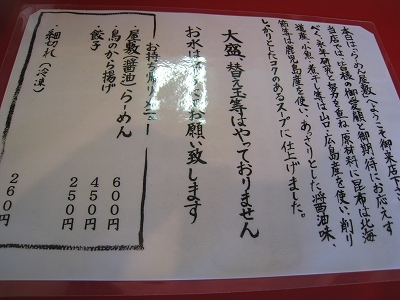 本日は、らーめん屋敷へようこそ御来店下さ
当店では、皆様の御愛顧と御期待にお応えす
べく、永年研究と努力を重ね、原材料に昆布は北海
道産、小魚、煮干し等は山口・広島産を使い、削り
節等は鹿児島産を使い、あっさりとした醤油味、
しっかりとしたコクのあるスープに仕上げました。
大盛、替え玉等はやっておりません
お水は お願い致します
お持ち帰りメニュー
・屋敷(醤油)らーめん 600円
・鳥のから揚げ 450円
餃子 250円
・細切れ(冷凍) 260円